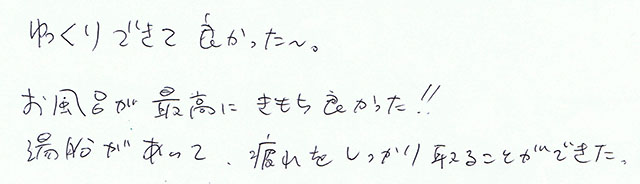 ゆっくりできて良かった～。
お風呂が最高にきもち良かった!!
湯船があって、疲れをしっかり取ることができた。